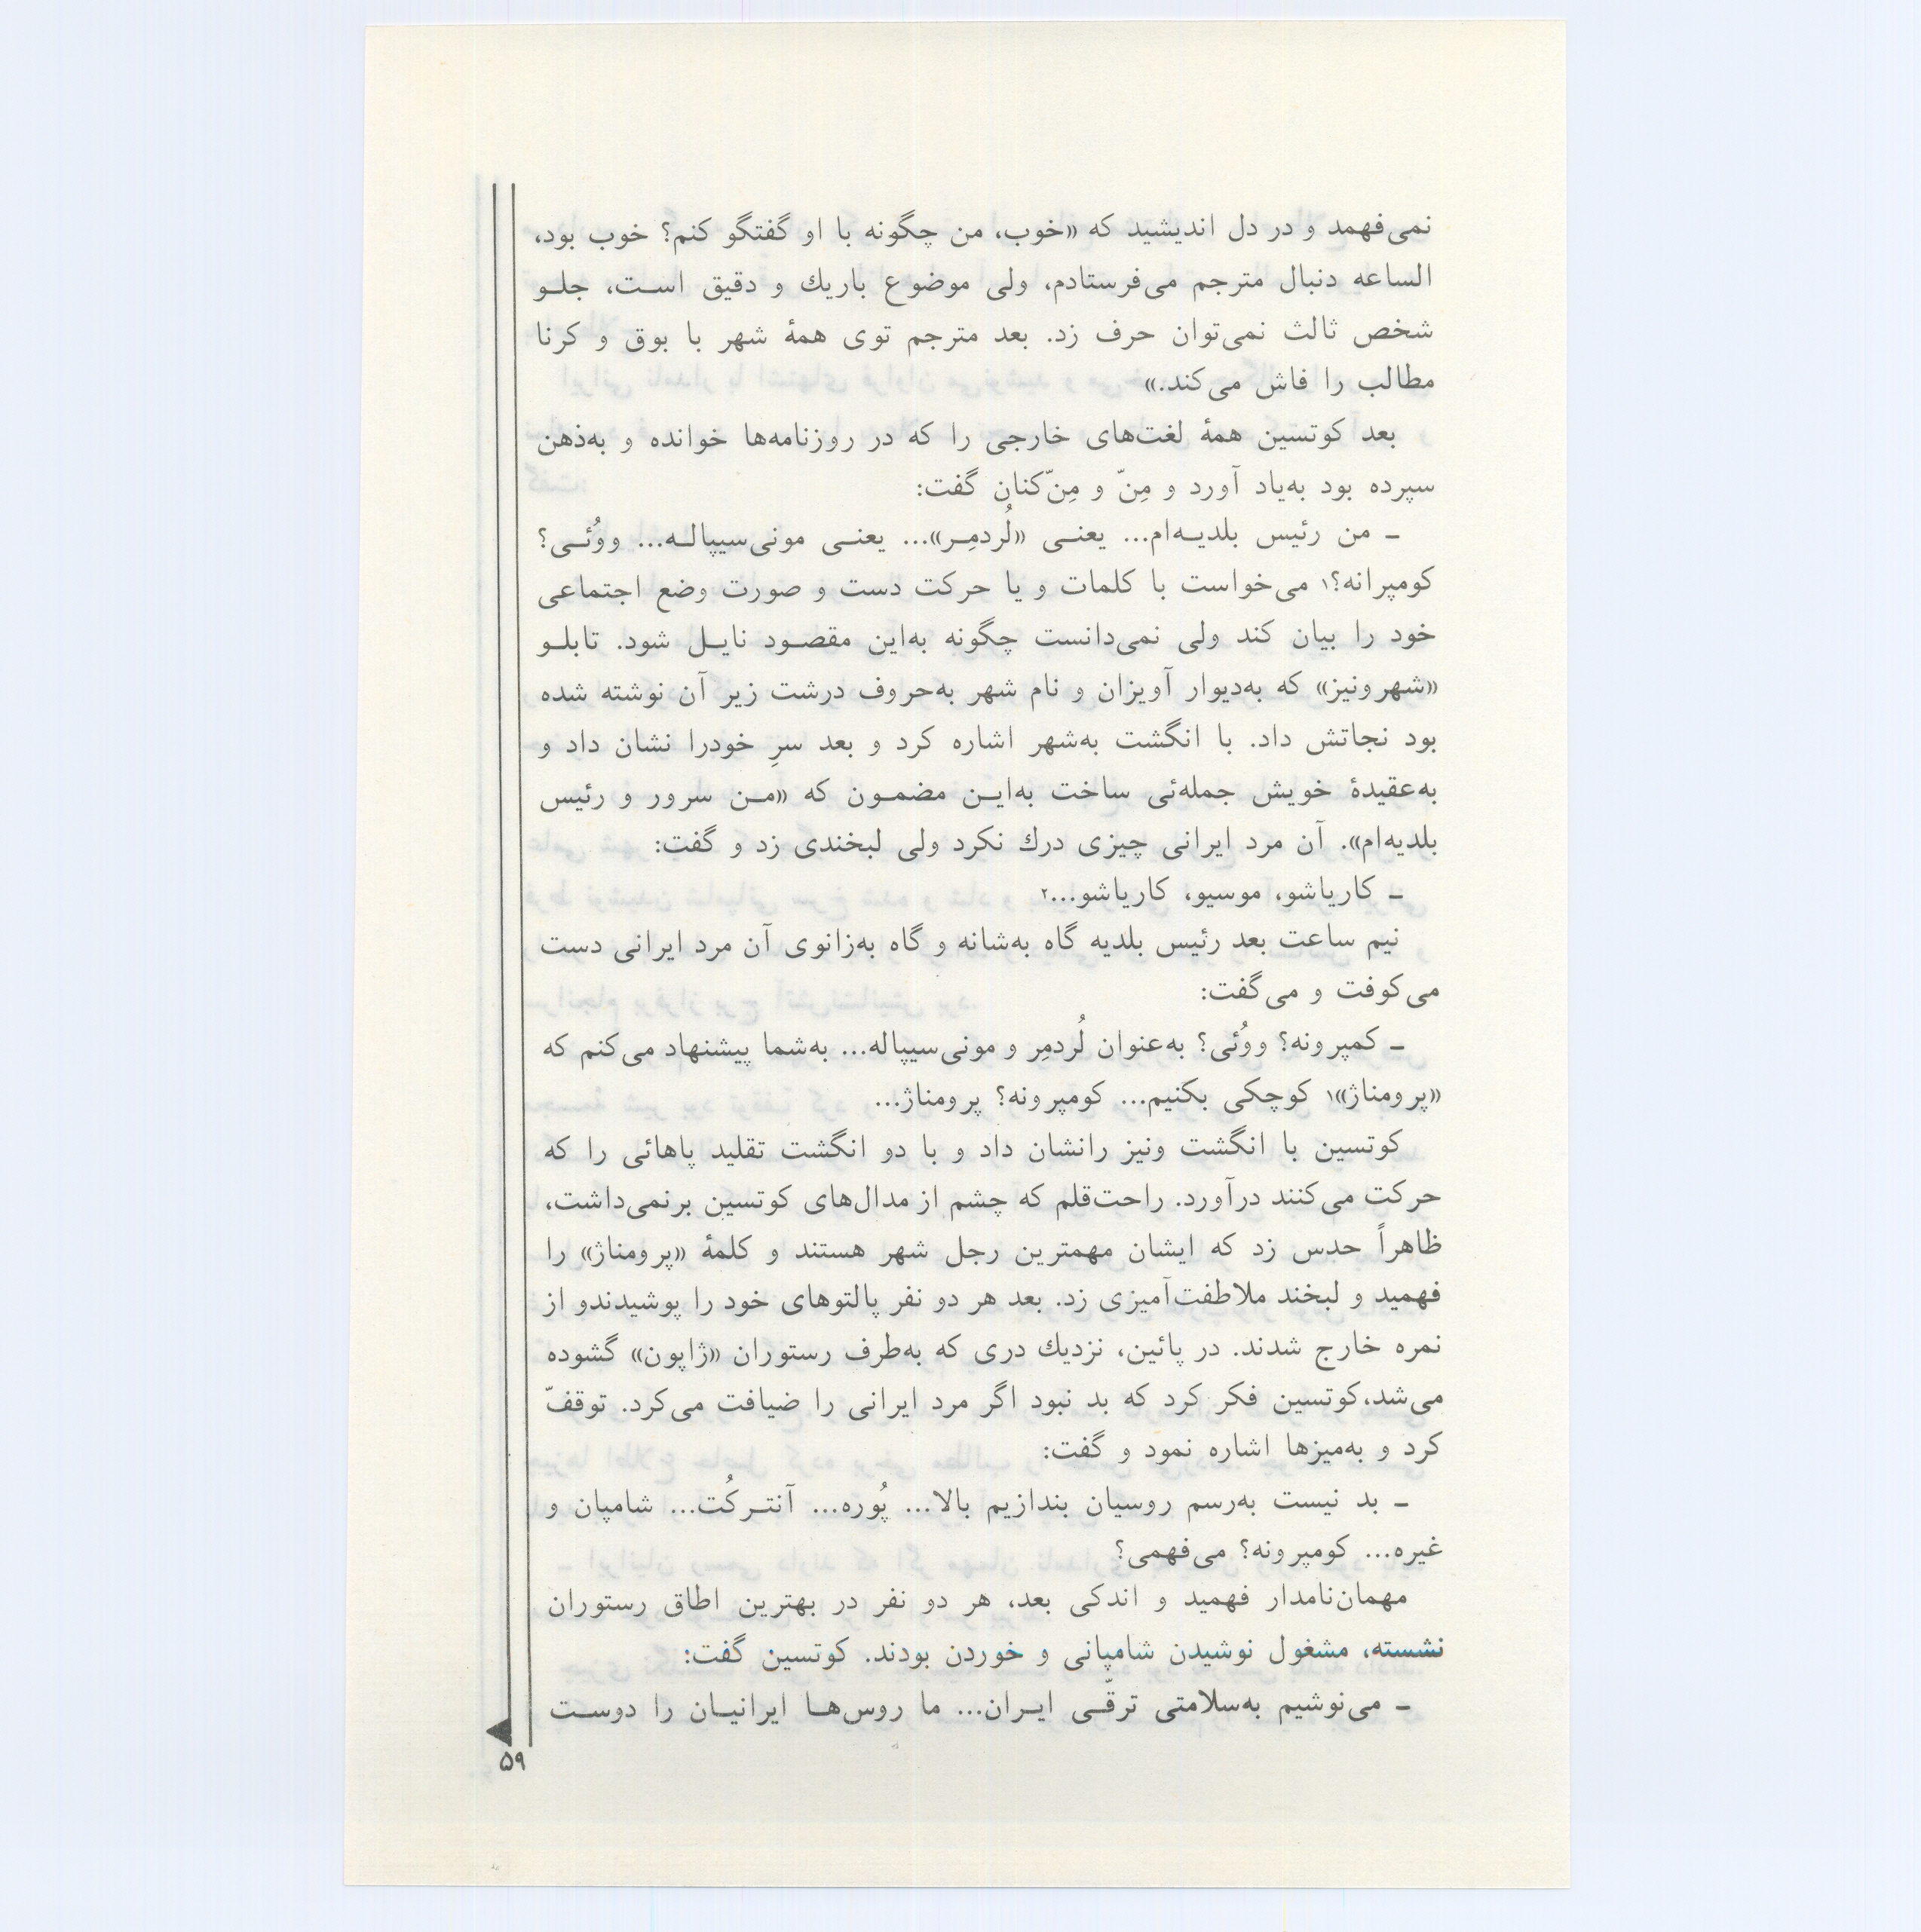 نمی‌فهمد و در دل اندیشید که «خوب، من چگونه با او گفتگو کنم؟ خوب بود،
الساعه دنبال مترجم می‌فرستادم، ولی موضوع باریك و دقیق اسـت، جلـو
شخص ثالث نمی‌توان حرف زد. بعد مترجم توی همهٔ شهر با بوق و کرنا
مطالب را فاش می‌کند.»
بعد کوتسین همهٔ لغت‌های خارجی را که در روزنامه‌ها خوانده و به‌ذهن
سپرده بود به‌یاد آورد و مِنّ و مِنّ‌کنان گفت:
ـ من رئیس بلدیـه‌ام... یعنـی «لُردمِـر»... یعنـی مونی‌سیپالـه... ووُئـی؟
کومپرانه؟۱ می‌خواست با کلمات و یا حرکت دست و صورت وضع اجتماعی
خود را بیان کند ولی نمی‌دانست چگونه به‌این مقصـود نایـل شود. تابلـو
«شهر ونیز» که به‌دیوار آویزان و نام شهر به‌حروف درشت زیر آن نوشته شده
بود نجاتش داد. با انگشت به‌شهر اشاره کرد و بعد سرِ خودرا نشان داد و
به‌عقیدهٔ خویش جمله‌ئی ساخت به‌ایـن مضمـون که «مـن سرور و رئیس
بلدیه‌ام». آن مرد ایرانی چیزی درك نکرد ولی لبخندی زد و گفت:
ـ کاریاشو، موسیو، کاریاشو...۲
نیم ساعت بعد رئیس بلدیه گاه به‌شانه و گاه به‌زانوی آن مرد ایرانی دست
می‌کوفت و می‌گفت:
ـ کمپرونه؟ ووُئی؟ به‌عنوان لُردمِر و مونی‌سیپاله... به‌شما پیشنهاد می‌کنم که
«پرومناژ»۱ کوچکی بکنیم... کومپرونه؟ پرومناژ...
کوتسین با انگشت ونیز رانشان داد و با دو انگشت تقلید پاهائی را که
حرکت می‌کنند درآورد. راحت‌قلم که چشم از مدال‌های کوتسین برنمی‌داشت،
ظاهراً حدس زد که ایشان مهمترین رجل شهر هستند و کلمهٔ «پرومناژ» را
فهمید و لبخند ملاطفت‌آمیزی زد. بعد هر دو نفر پالتوهای خود را پوشیدندو از
نمره خارج شدند. در پائین، نزدیك دری که به‌طرف رستوران «ژاپون» گشوده
می‌شد،کوتسین فکر کرد که بد نبود اگر مرد ایرانی را ضیافت می‌کرد. توقفّ
کرد و به‌میزها اشاره نمود و گفت:
ـ بد نیست به‌رسم روسیان بندازیم بالا... پُوره... آنتـرکُت... شامپان و
غیره... کومپرونه؟ می‌فهمی؟
مهمان‌نامدار فهمید و اندکی بعد، هر دو نفر در بهترین اطاق رستوران
نشسته، مشغول نوشیدن شامپانی و خوردن بودند. کوتسین گفت:
ـ می‌نوشیم به‌سلامتی ترقّـی ایـران... ما روس‌هـا ایرانیـان را دوسـت
۵۹